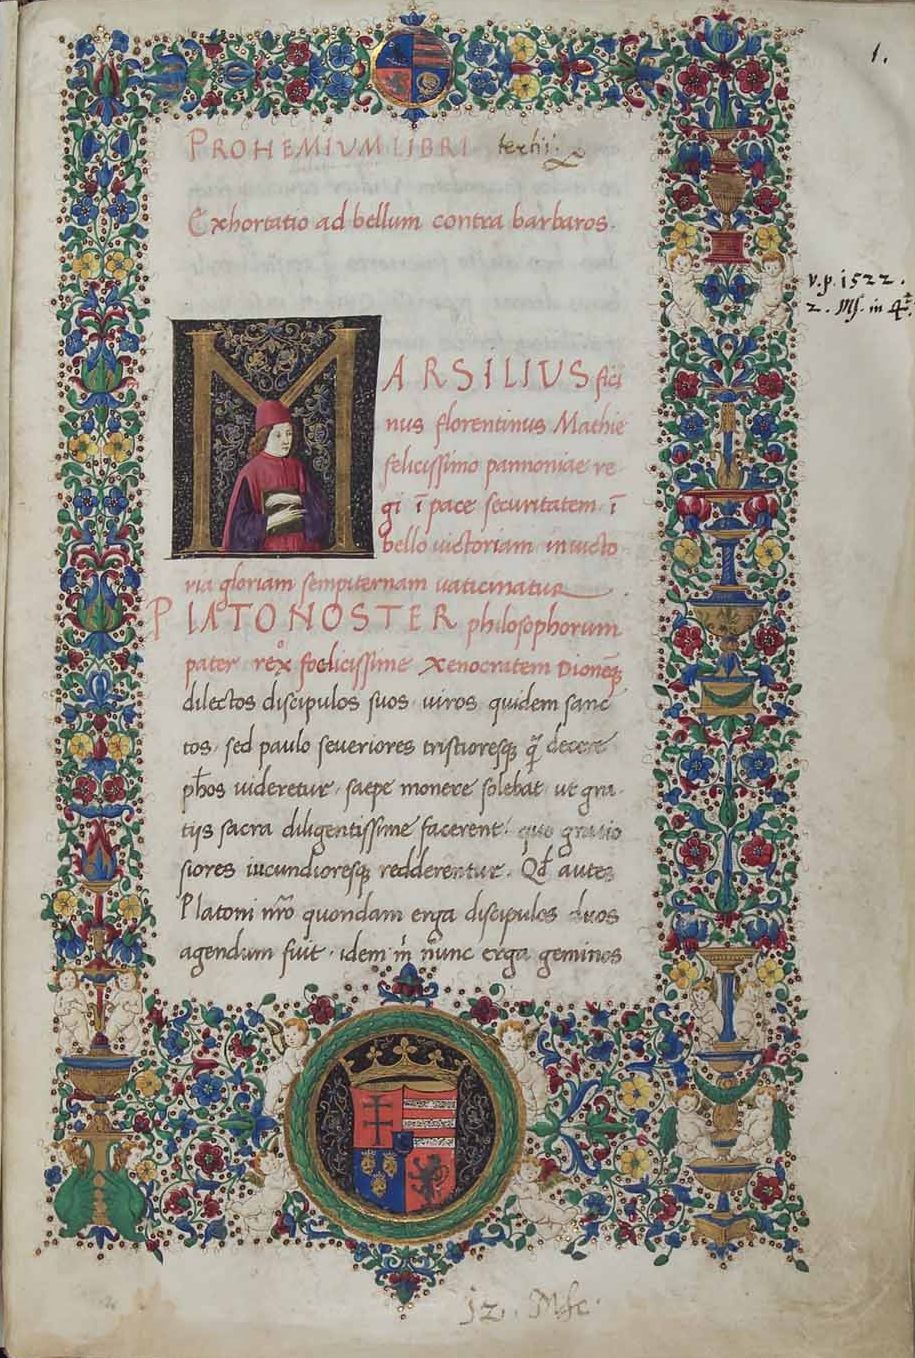 1.
PROHEMIVM LIBRI tertii
Exhortatio ad bellum contra barbaros.
v.p. 1522.
2. Ms. in 4
MARSILIUS fici
nus florentinus Mathie
felicissimo pannoniae re
gi ī pace securitatem ī
bello uictoriam in uicto
ria gloriam sempiternam uaticinatur
PLATO NOSTER philosophorum
pater rex foelicissime Xenocratem Dionēq;
dilectos discipulos suos uiros quidem sanc
tos sed paulo seueriores tristioresq; q̄ decere
phos uideretur saepe monere solebat ut gra
tijs sacra diligentissime facerent quo gratio
siores iucundioresq; redderentur. Qd autē
Platoni nr̄o quondam erga discipulos duos
agendum fuit idem nunc erga geminos